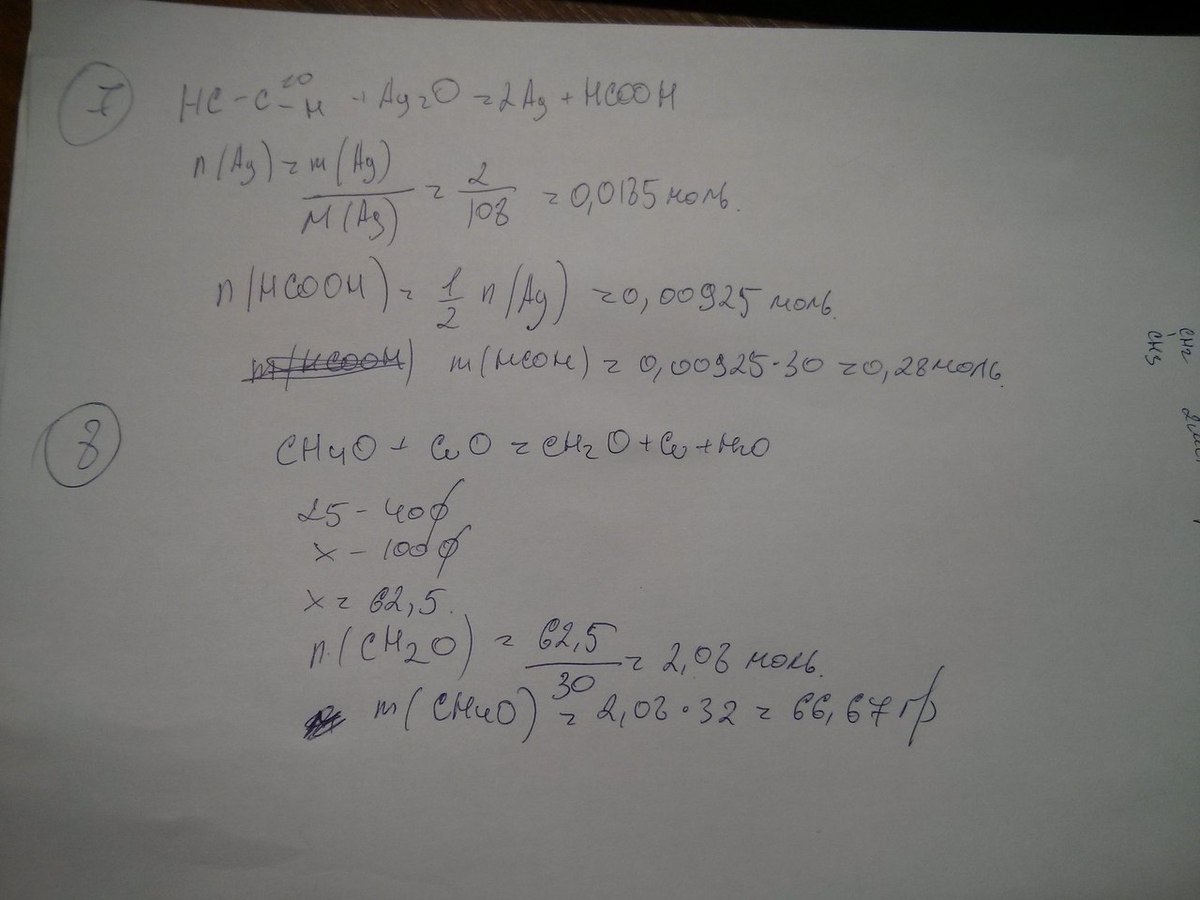 7
HC-C=O-H + Ag2O = 2Ag + HCOOH
n(Ag) = m(Ag)/M(Ag) = 2/108 = 0,0185 моль.
n(HCOOH) = 1/2 n(Ag) = 0,00925 моль.
m(HCOOH) m(HCOH) = 0,00925·30 = 0,28 моль.
8
CH4O + CuO = CH2O + Cu + H2O
25 - 40%
x - 100%
x = 62,5.
n(CH2O) = 62,5/30 = 2,08 моль.
m(CH4O) = 2,08·32 = 66,67 гр
CH2
CH3